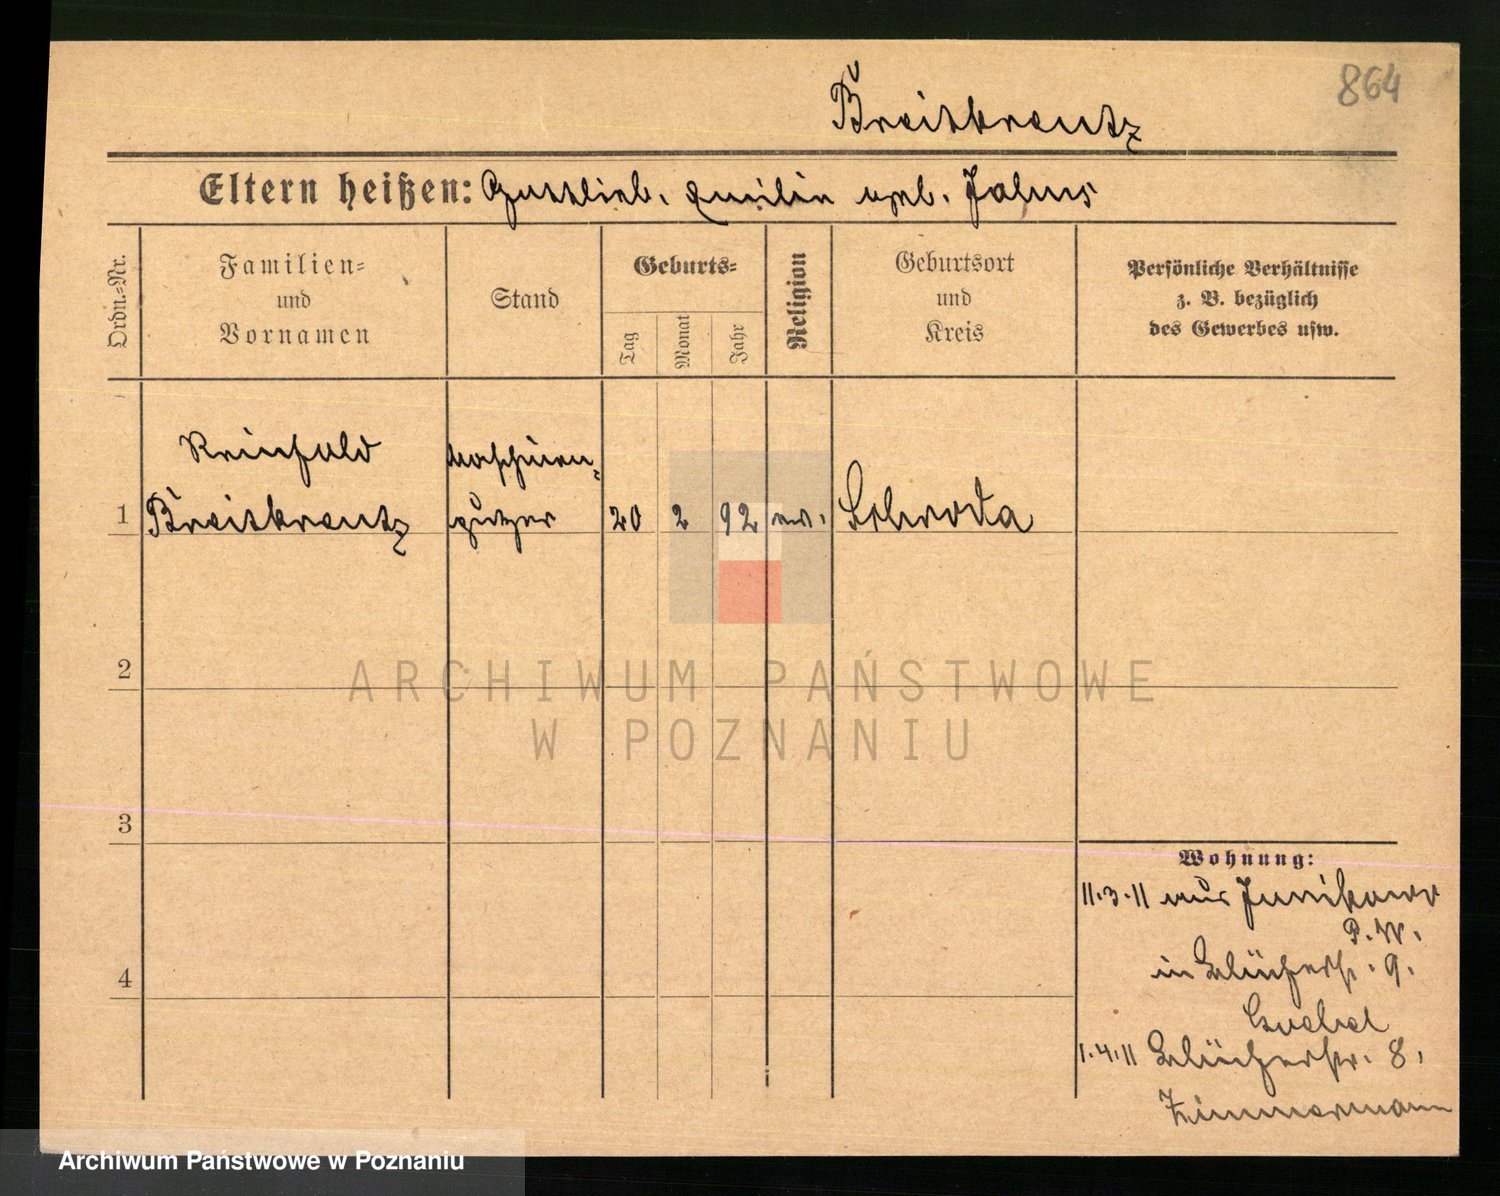 864
Breitkreutz
Eltern heißen: Gottlieb. Emilie geb. Jahns
Ordn.=Nr.
Familien=
und
Vornamen
Stand
Geburts=
Tag
Monat
Jahr
Religion
Geburtsort
und
Kreis
Persönliche Verhältnisse
z. B. bezüglich
des Gewerbes usw.
Reinhold
Maschinen-
1 Breitkreutz putzer 20 2 92 ev. Schroda
2
3
4
ARCHIWUM PAŃSTWOWE
W POZNANIU
Wohnung:
11.3.11 aus Junikowo
P. W.
in Blücherstr. 9.
Goebel
1.4.11 Blücherstr. 8,
Zimmermann
Archiwum Państwowe w Poznaniu